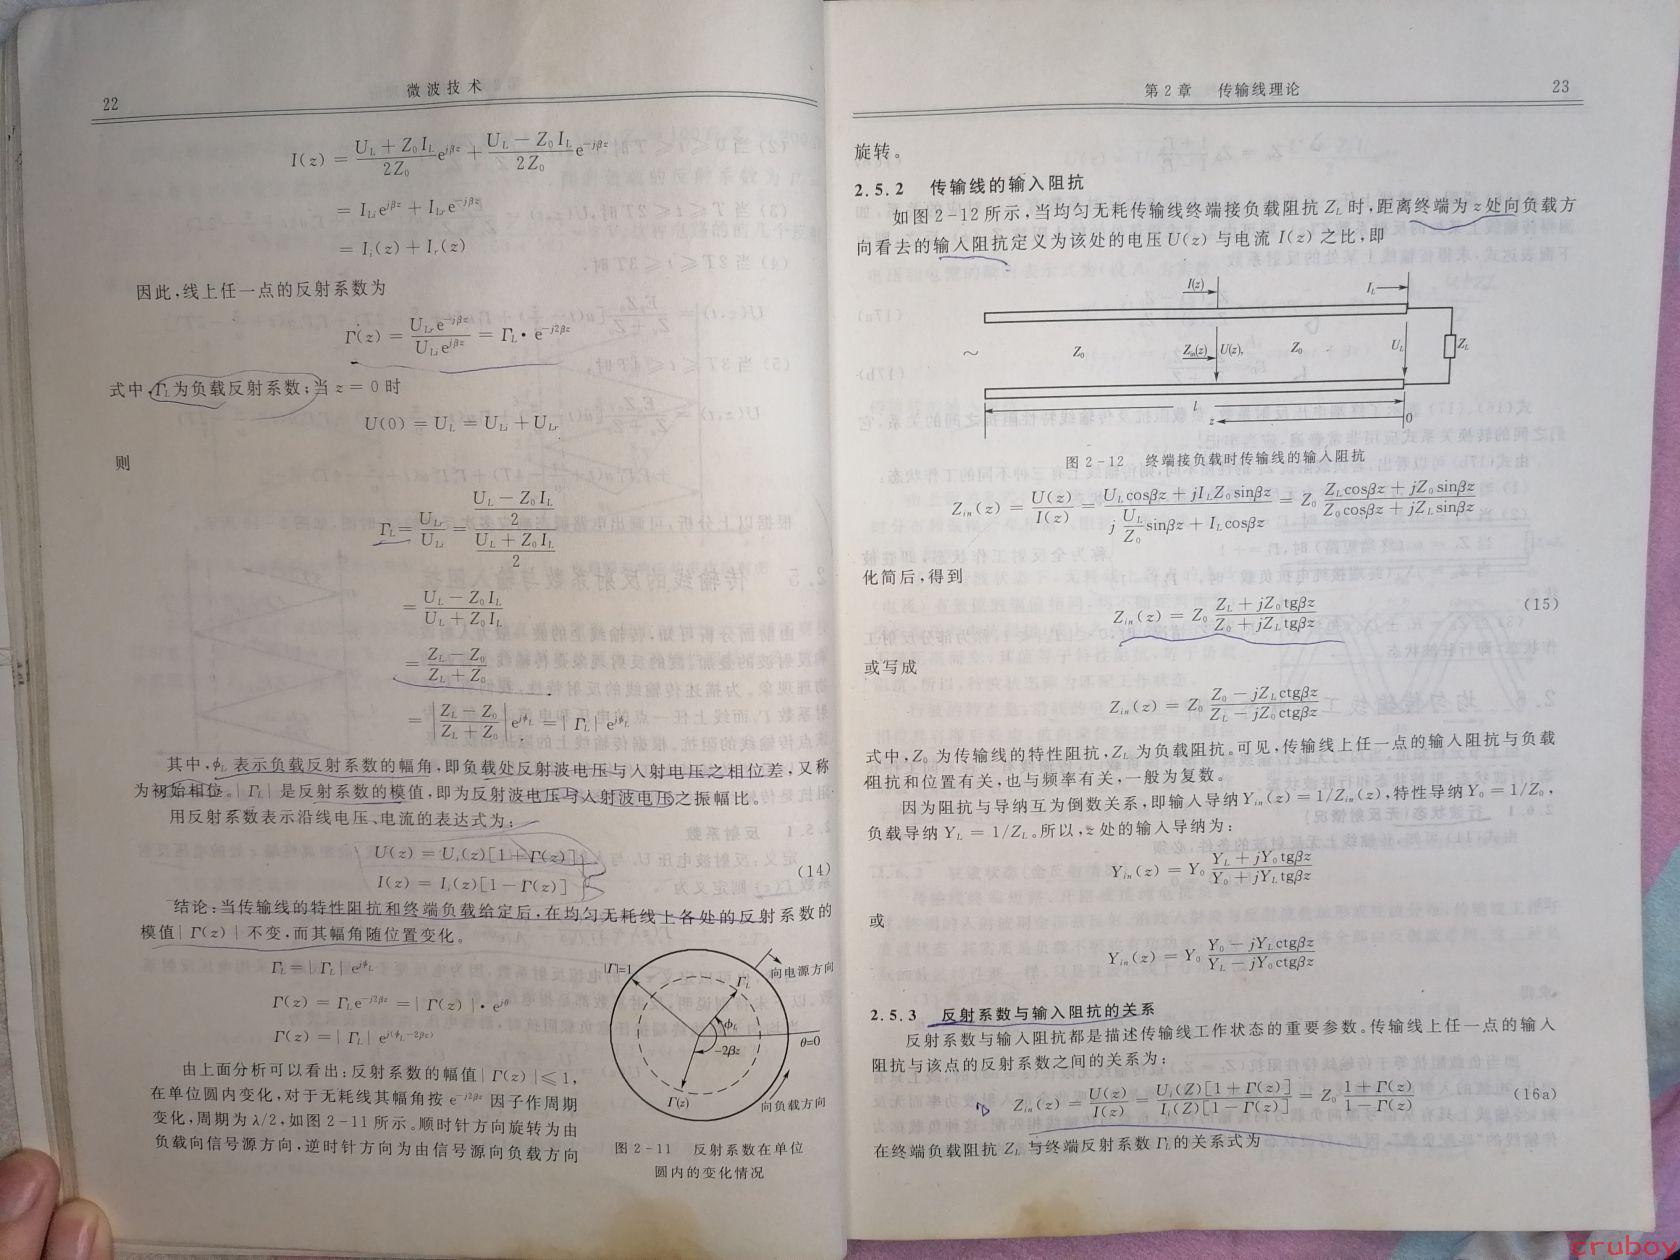 22
微波技术
I(z) = \frac{U_L + Z_0 I_L}{2Z_0} e^{jβz} + \frac{U_L - Z_0 I_L}{2Z_0} e^{-jβz}
= I_{Li} e^{jβz} + I_{Lr} e^{-jβz}
= I_i(z) + I_r(z)
因此,线上任一点的反射系数为
Γ(z) = \frac{U_{Lr} e^{-jβz}}{U_{Li} e^{jβz}} = Γ_L · e^{-j2βz}
式中,Γ_L为负载反射系数;当 z = 0 时
U(0) = U_L = U_{Li} + U_{Lr}
则
Γ_L = \frac{U_{Lr}}{U_{Li}} = \frac{\frac{U_L - Z_0 I_L}{2}}{\frac{U_L + Z_0 I_L}{2}}
= \frac{U_L - Z_0 I_L}{U_L + Z_0 I_L}
= \frac{Z_L - Z_0}{Z_L + Z_0}
= \left|\frac{Z_L - Z_0}{Z_L + Z_0}\right| e^{jφ_L} = |Γ_L| e^{jφ_L}
其中,φ_L 表示负载反射系数的幅角,即负载处反射波电压与入射电压之相位差,又称
为初始相位。|Γ_L| 是反射系数的模值,即为反射波电压与入射波电压之振幅比。
用反射系数表示沿线电压、电流的表达式为:
U(z) = U_i(z)[1 + Γ(z)]
I(z) = I_i(z)[1 - Γ(z)]
(14)
结论:当传输线的特性阻抗和终端负载给定后,在均匀无耗线上各处的反射系数的
模值|Γ(z)|不变,而其幅角随位置变化。
Γ_L = |Γ_L| e^{jφ_L}
Γ(z) = Γ_L e^{-j2βz} = |Γ(z)| · e^{jθ}
Γ(z) = |Γ_L| e^{j(φ_L-2βz)}
由上面分析可以看出:反射系数的幅值|Γ(z)|≤1,
在单位圆内变化,对于无耗线其幅角按 e^{-j2βz} 因子作周期
变化,周期为 λ/2,如图 2-11 所示。顺时针方向旋转为由
负载向信号源方向,逆时针方向为由信号源向负载方向
|Γ|=1
Γ_L
向电源方向
φ_L
θ=0
-2βz
Γ(z)
向负载方向
图 2-11 反射系数在单位
圆内的变化情况
第 2 章 传输线理论
23
旋转。
2.5.2 传输线的输入阻抗
如图 2-12 所示,当均匀无耗传输线终端接负载阻抗 Z_L 时,距离终端为 z 处向负载方
向看去的输入阻抗定义为该处的电压 U(z) 与电流 I(z) 之比,即
I(z)
I_L
~
Z_0
Z_{in}(z)
U(z),
Z_0
U_L
Z_L
l
z
0
图 2-12 终端接负载时传输线的输入阻抗
Z_{in}(z) = \frac{U(z)}{I(z)} = \frac{U_L cosβz + jI_L Z_0 sinβz}{j\frac{U_L}{Z_0} sinβz + I_L cosβz} = Z_0 \frac{Z_L cosβz + jZ_0 sinβz}{Z_0 cosβz + jZ_L sinβz}
化简后,得到
Z_{in}(z) = Z_0 \frac{Z_L + jZ_0 tgβz}{Z_0 + jZ_L tgβz}
(15)
或写成
Z_{in}(z) = Z_0 \frac{Z_0 - jZ_L ctgβz}{Z_L - jZ_0 ctgβz}
式中,Z_0 为传输线的特性阻抗,Z_L 为负载阻抗。可见,传输线上任一点的输入阻抗与负载
阻抗和位置有关,也与频率有关,一般为复数。
因为阻抗与导纳互为倒数关系,即输入导纳Y_{in}(z)=1/Z_{in}(z),特性导纳Y_0=1/Z_0,
负载导纳 Y_L = 1/Z_L。所以,z 处的输入导纳为:
Y_{in}(z) = Y_0 \frac{Y_L + jY_0 tgβz}{Y_0 + jY_L tgβz}
或
Y_{in}(z) = Y_0 \frac{Y_0 - jY_L ctgβz}{Y_L - jY_0 ctgβz}
2.5.3 反射系数与输入阻抗的关系
反射系数与输入阻抗都是描述传输线工作状态的重要参数。传输线上任一点的输入
阻抗与该点的反射系数之间的关系为:
Z_{in}(z) = \frac{U(z)}{I(z)} = \frac{U_i(Z)[1+Γ(z)]}{I_i(Z)[1-Γ(z)]} = Z_0 \frac{1+Γ(z)}{1-Γ(z)}
(16a)
在终端负载阻抗 Z_L 与终端反射系数 Γ_L的关系式为
cruboy